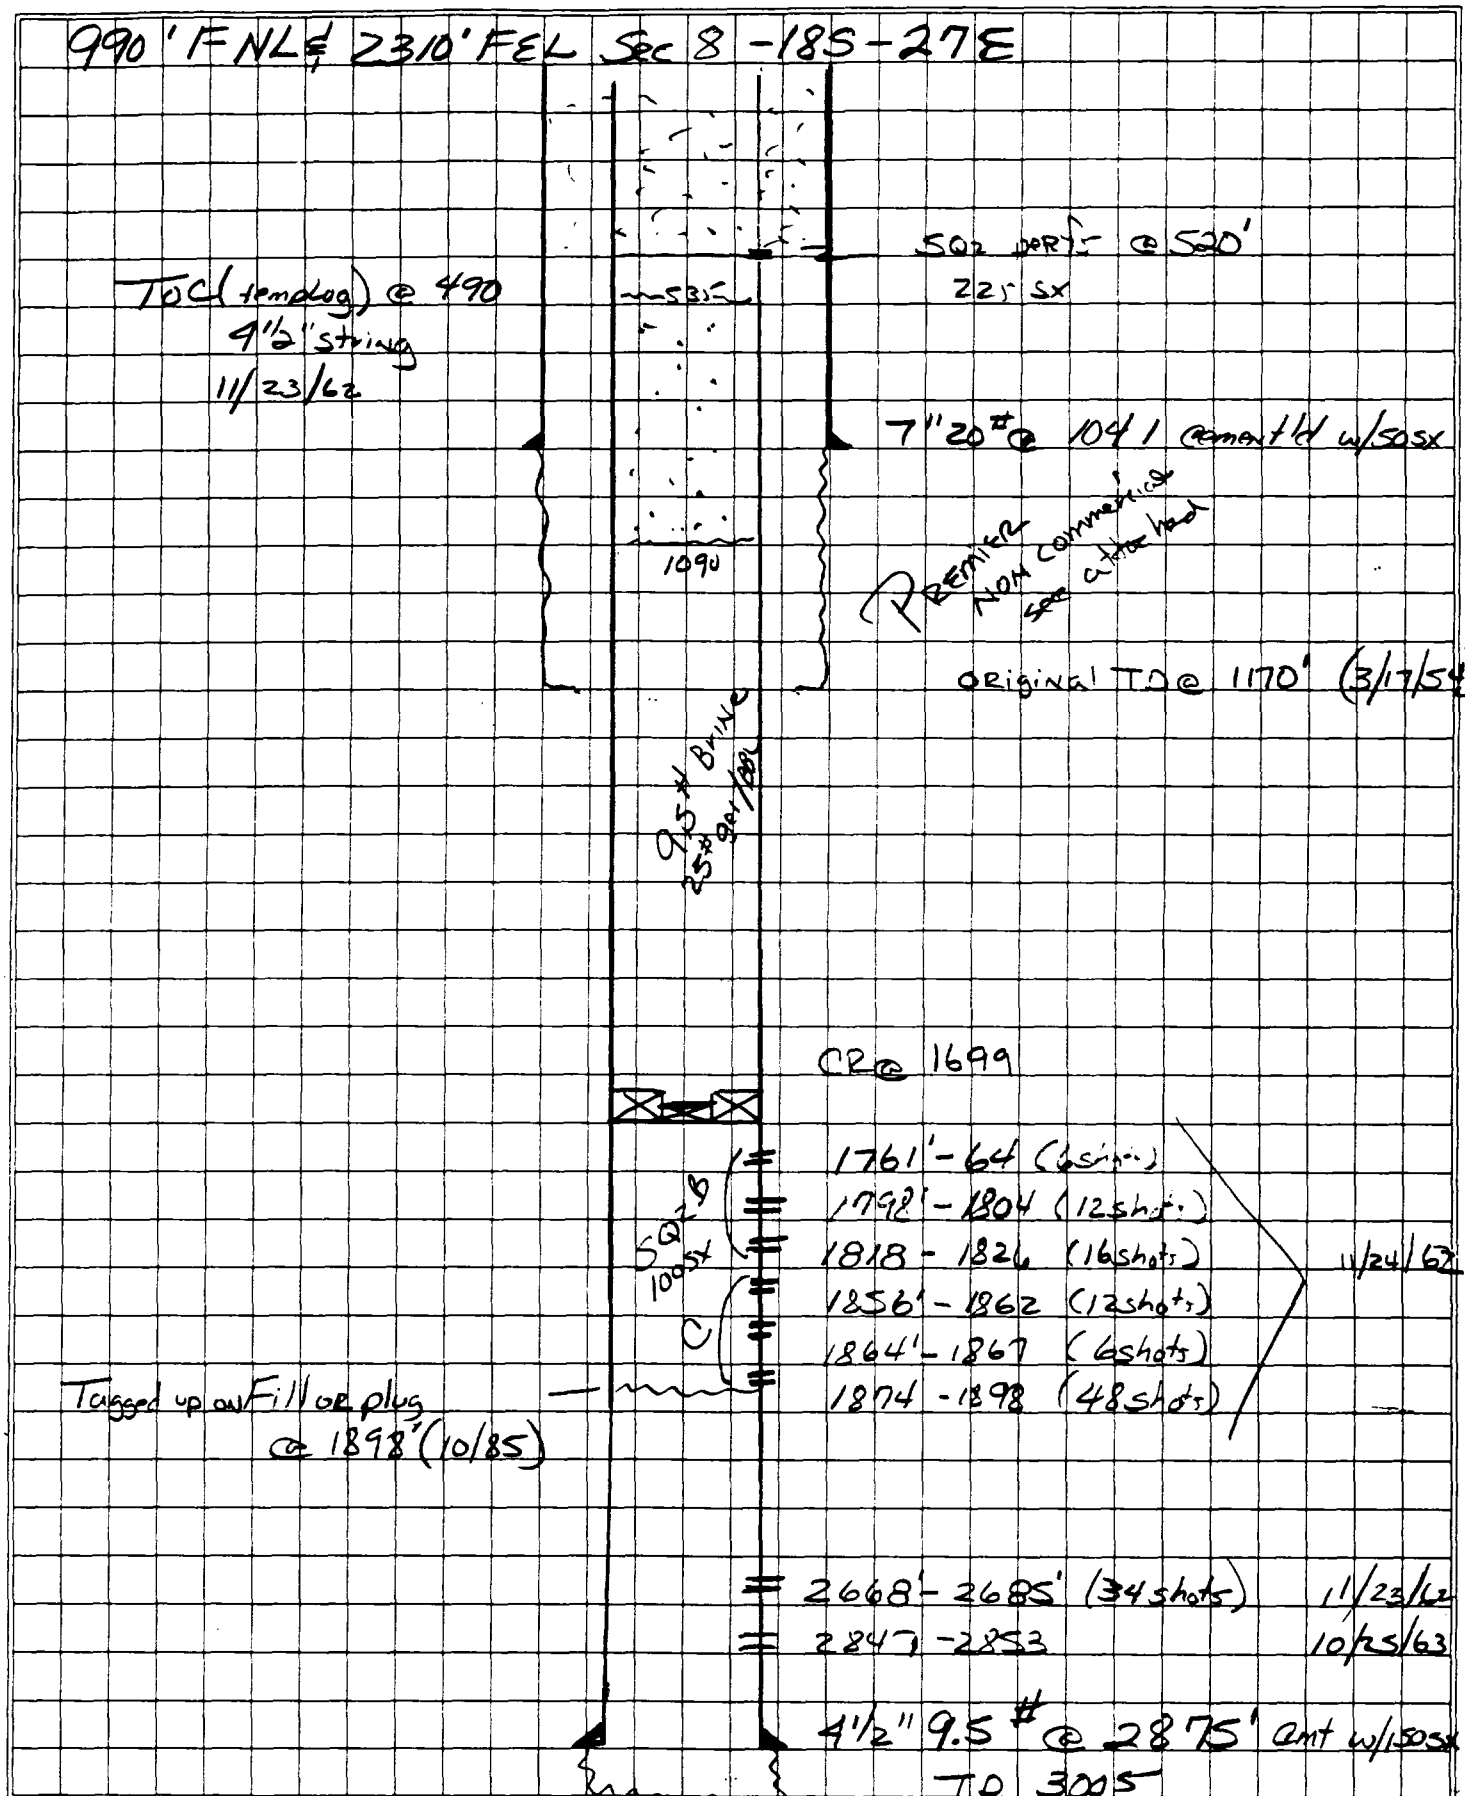 990' FNL & 2310' FEL Sec 8 -18S-27E
SQZ perfs @ 520'
225 sx
TOC (temp log) @ 490
4 1/2" string
11/23/62
535
7" 20# @ 1041 cement'd w/50sx
PREMIER
NON Commercial
see attached
1090
ORiginal TD @ 1170' (3/17/54
9.5# Brine
25# gel/BBL
CR @ 1699
1761'-64 (6shots)
1798'-1804 (12shots)
1818 - 1826 (16shots)
11/24/62
1856'-1862 (12shots)
1864'-1867 (6shots)
1874 -1898 (48shots)
SQZ B
100sx
C
Tagged up on Fill OR plug
@ 1898' (10/85)
2668'-2685' (34shots) 11/23/62
2847 -2853 10/25/63
4 1/2" 9.5# @ 2875' cmt w/150sx
TD 3005